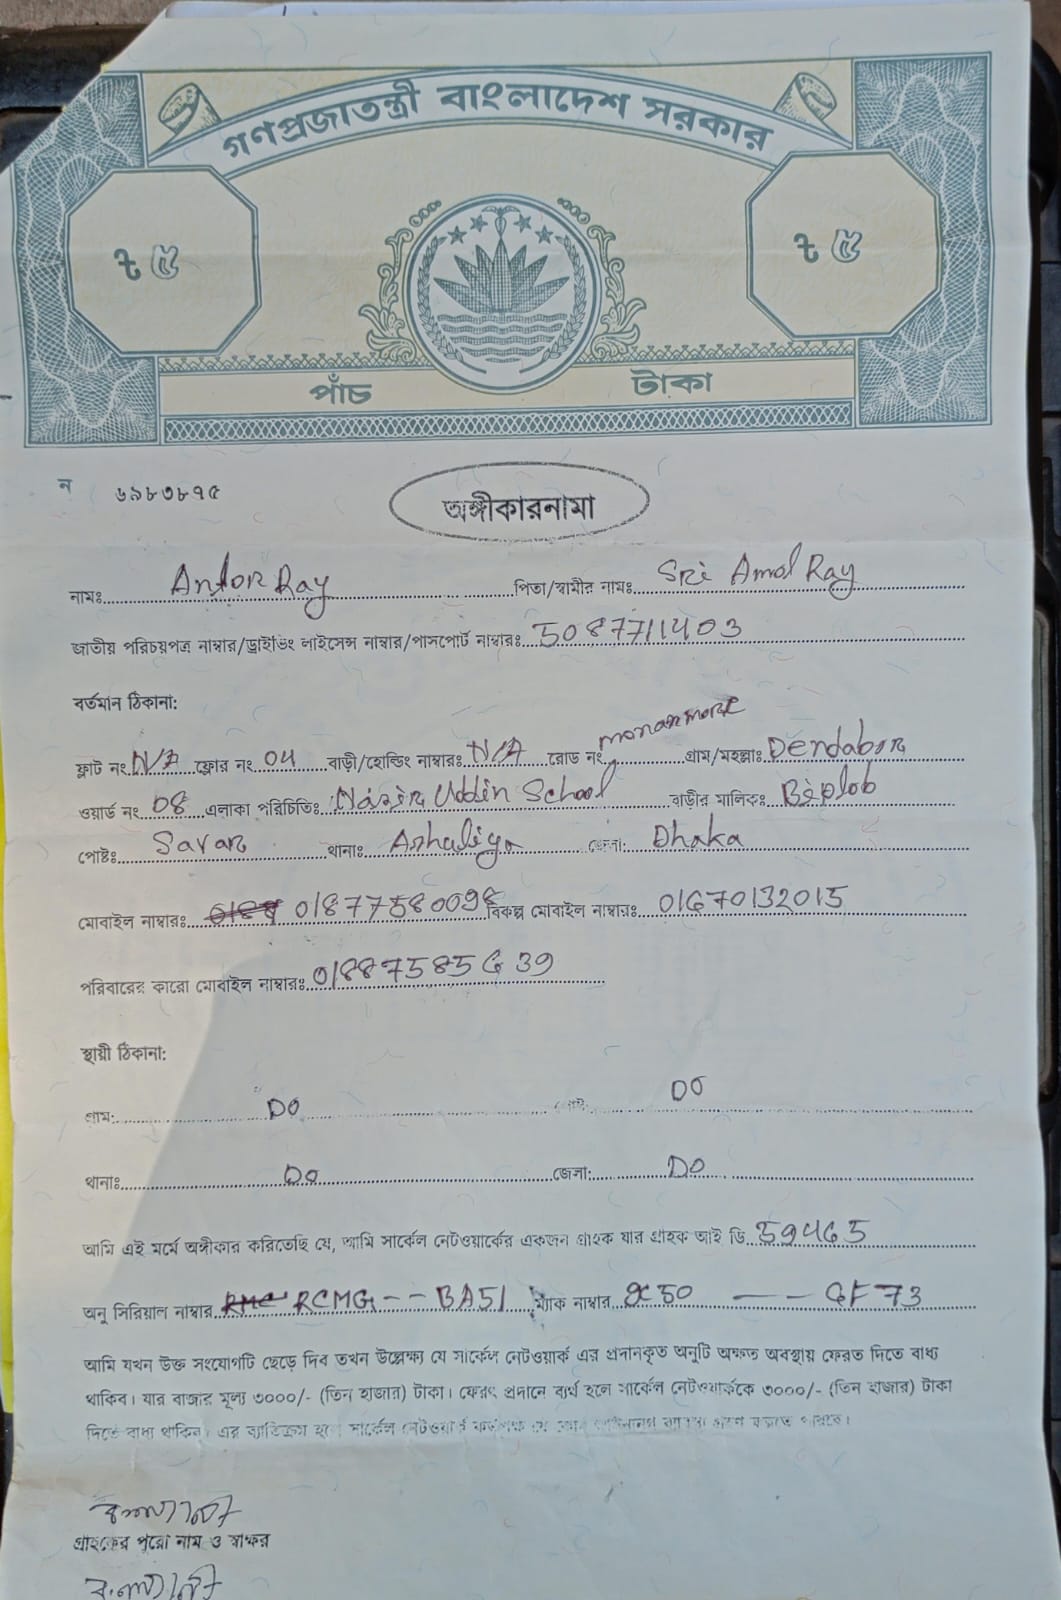 গণপ্রজাতন্ত্রী বাংলাদেশ সরকার
৳ ৫ ৳ ৫
পাঁচ টাকা
ন ৬৯৮৩৮৭৫
অঙ্গীকারনামা
নামঃ Antor Ray পিতা/স্বামীর নামঃ Sri Amol Ray
জাতীয় পরিচয়পত্র নাম্বার/ড্রাইভিং লাইসেন্স নাম্বার/পাসপোর্ট নাম্বারঃ 5087711403
বর্তমান ঠিকানা:
ফ্লাট নং N/A ফ্লোর নং 04 বাড়ী/হোল্ডিং নাম্বারঃ N/A রোড নং গ্রাম/মহল্লাঃ Dendabor
ওয়ার্ড নং 08 এলাকা পরিচিতিঃ Nasir Uddin School বাড়ীর মালিকঃ Biplob
পোষ্টঃ Savar থানাঃ Ashaliya জেলা: Dhaka
মোবাইল নাম্বারঃ 01877580098 বিকল্প মোবাইল নাম্বারঃ 01670132015
পরিবারের কারো মোবাইল নাম্বারঃ 01887585639
স্থায়ী ঠিকানা:
গ্রাম: DO DO
থানাঃ DO জেলা: DO
আমি এই মর্মে অঙ্গীকার করিতেছি যে, আমি সার্কেল নেটওয়ার্কের একজন গ্রাহক যার গ্রাহক আই ডি 59465
অনু সিরিয়াল নাম্বার RCMG -- BA51 ম্যাক নাম্বার 9C50 —— GF73
আমি যখন উক্ত সংযোগটি ছেড়ে দিব তখন উল্লেক্ষ্য যে সার্কেল নেটওয়ার্ক এর প্রদানকৃত অনুটি অক্ষত অবস্থায় ফেরত দিতে বাধ্য
থাকিব। যার বাজার মূল্য ৩০০০/- (তিন হাজার) টাকা। ফেরৎ প্রদানে ব্যর্থ হলে সার্কেল নেটওয়ার্ককে ৩০০০/- (তিন হাজার) টাকা
দিতে বাধ্য থাকিব। এর ব্যতিক্রম হলে সার্কেল নেটওয়ার্ক
গ্রাহকের পুরো নাম ও স্বাক্ষর